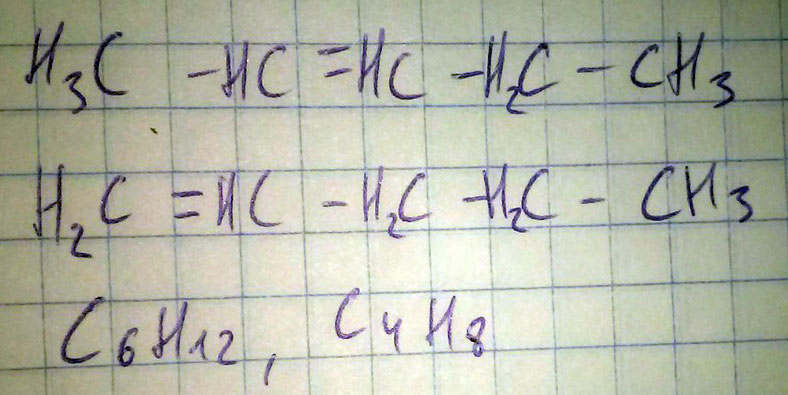 H₃C -HC =HC -H₂C - CH₃
H₂C =HC - H₂C -H₂C - CH₃
C₆H₁₂, C₄H₈